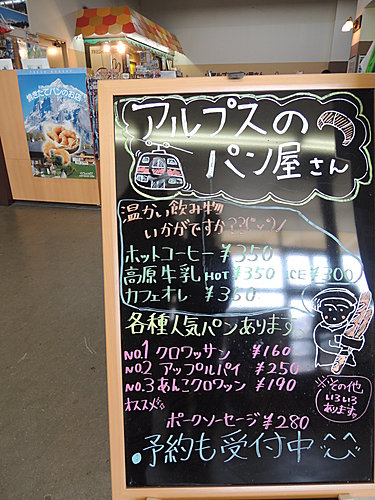 焼きたてパンのお店
アルプスの
パン屋さん
温かい飲み物
いかがですか??(^v^)/
ホットコーヒー ¥350
高原牛乳 HOT ¥350 ICE ¥300
カフェオレ ¥350
各種人気パンあります。
NO.1 クロワッサン ¥160
NO.2 アップルパイ ¥250
NO.3 あんこクロワッン ¥190
※その他
いろいろ
あります。
オススメ!!
ポークソーセージ ¥280
•予約も受付中 ^^